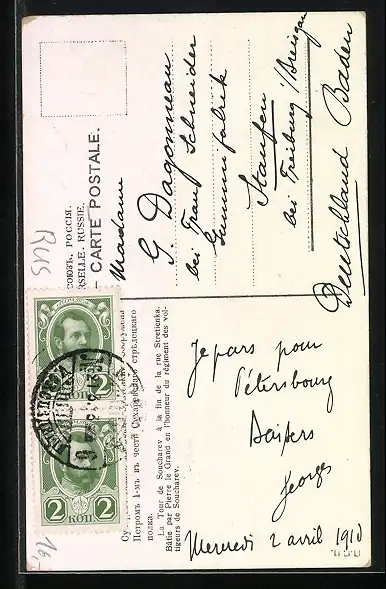 СОЮЗЪ. РОССІЯ.
RSELLE. RUSSIE.
CARTE POSTALE.
Madame
G. Dagonneau
bei Franz Schneider
Gummifabrik
Staufen
bei Freiburg /Breisgau
Deutschland Baden
RUS
2 КОП 2
2 КОП 2
Петромъ I-мъ въ честь Сухаревскаго стрѣлецкаго
полка.
La Tour de Soucharev à la fin de la rue Stretienka.
Bâtie par Pierre le Grand en l'honneur du régiment des vol-
tigeurs de Soucharev.
Je pars pour
Pétersbourg
Baisers
Georges
Mercredi 2 avril 1910
16,-